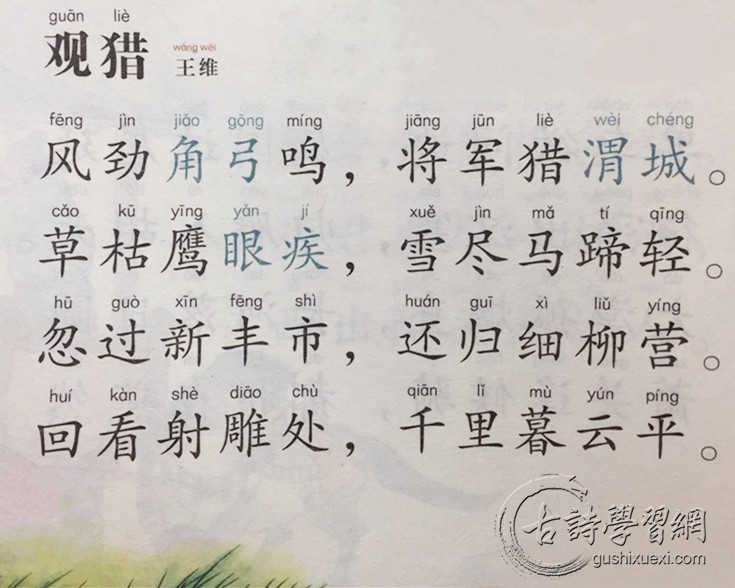 guān liè
观猎 wáng wéi
王维
fēng jìn jiǎo gōng míng jiāng jūn liè wèi chéng
风劲角弓鸣，将军猎渭城。
cǎo kū yīng yǎn jí xuě jìn mǎ tí qīng
草枯鹰眼疾，雪尽马蹄轻。
hū guò xīn fēng shì huán guī xì liǔ yíng
忽过新丰市，还归细柳营。
huí kàn shè diāo chù qiān lǐ mù yún píng
回看射雕处，千里暮云平。
古詩學習網
gushixuexi.com